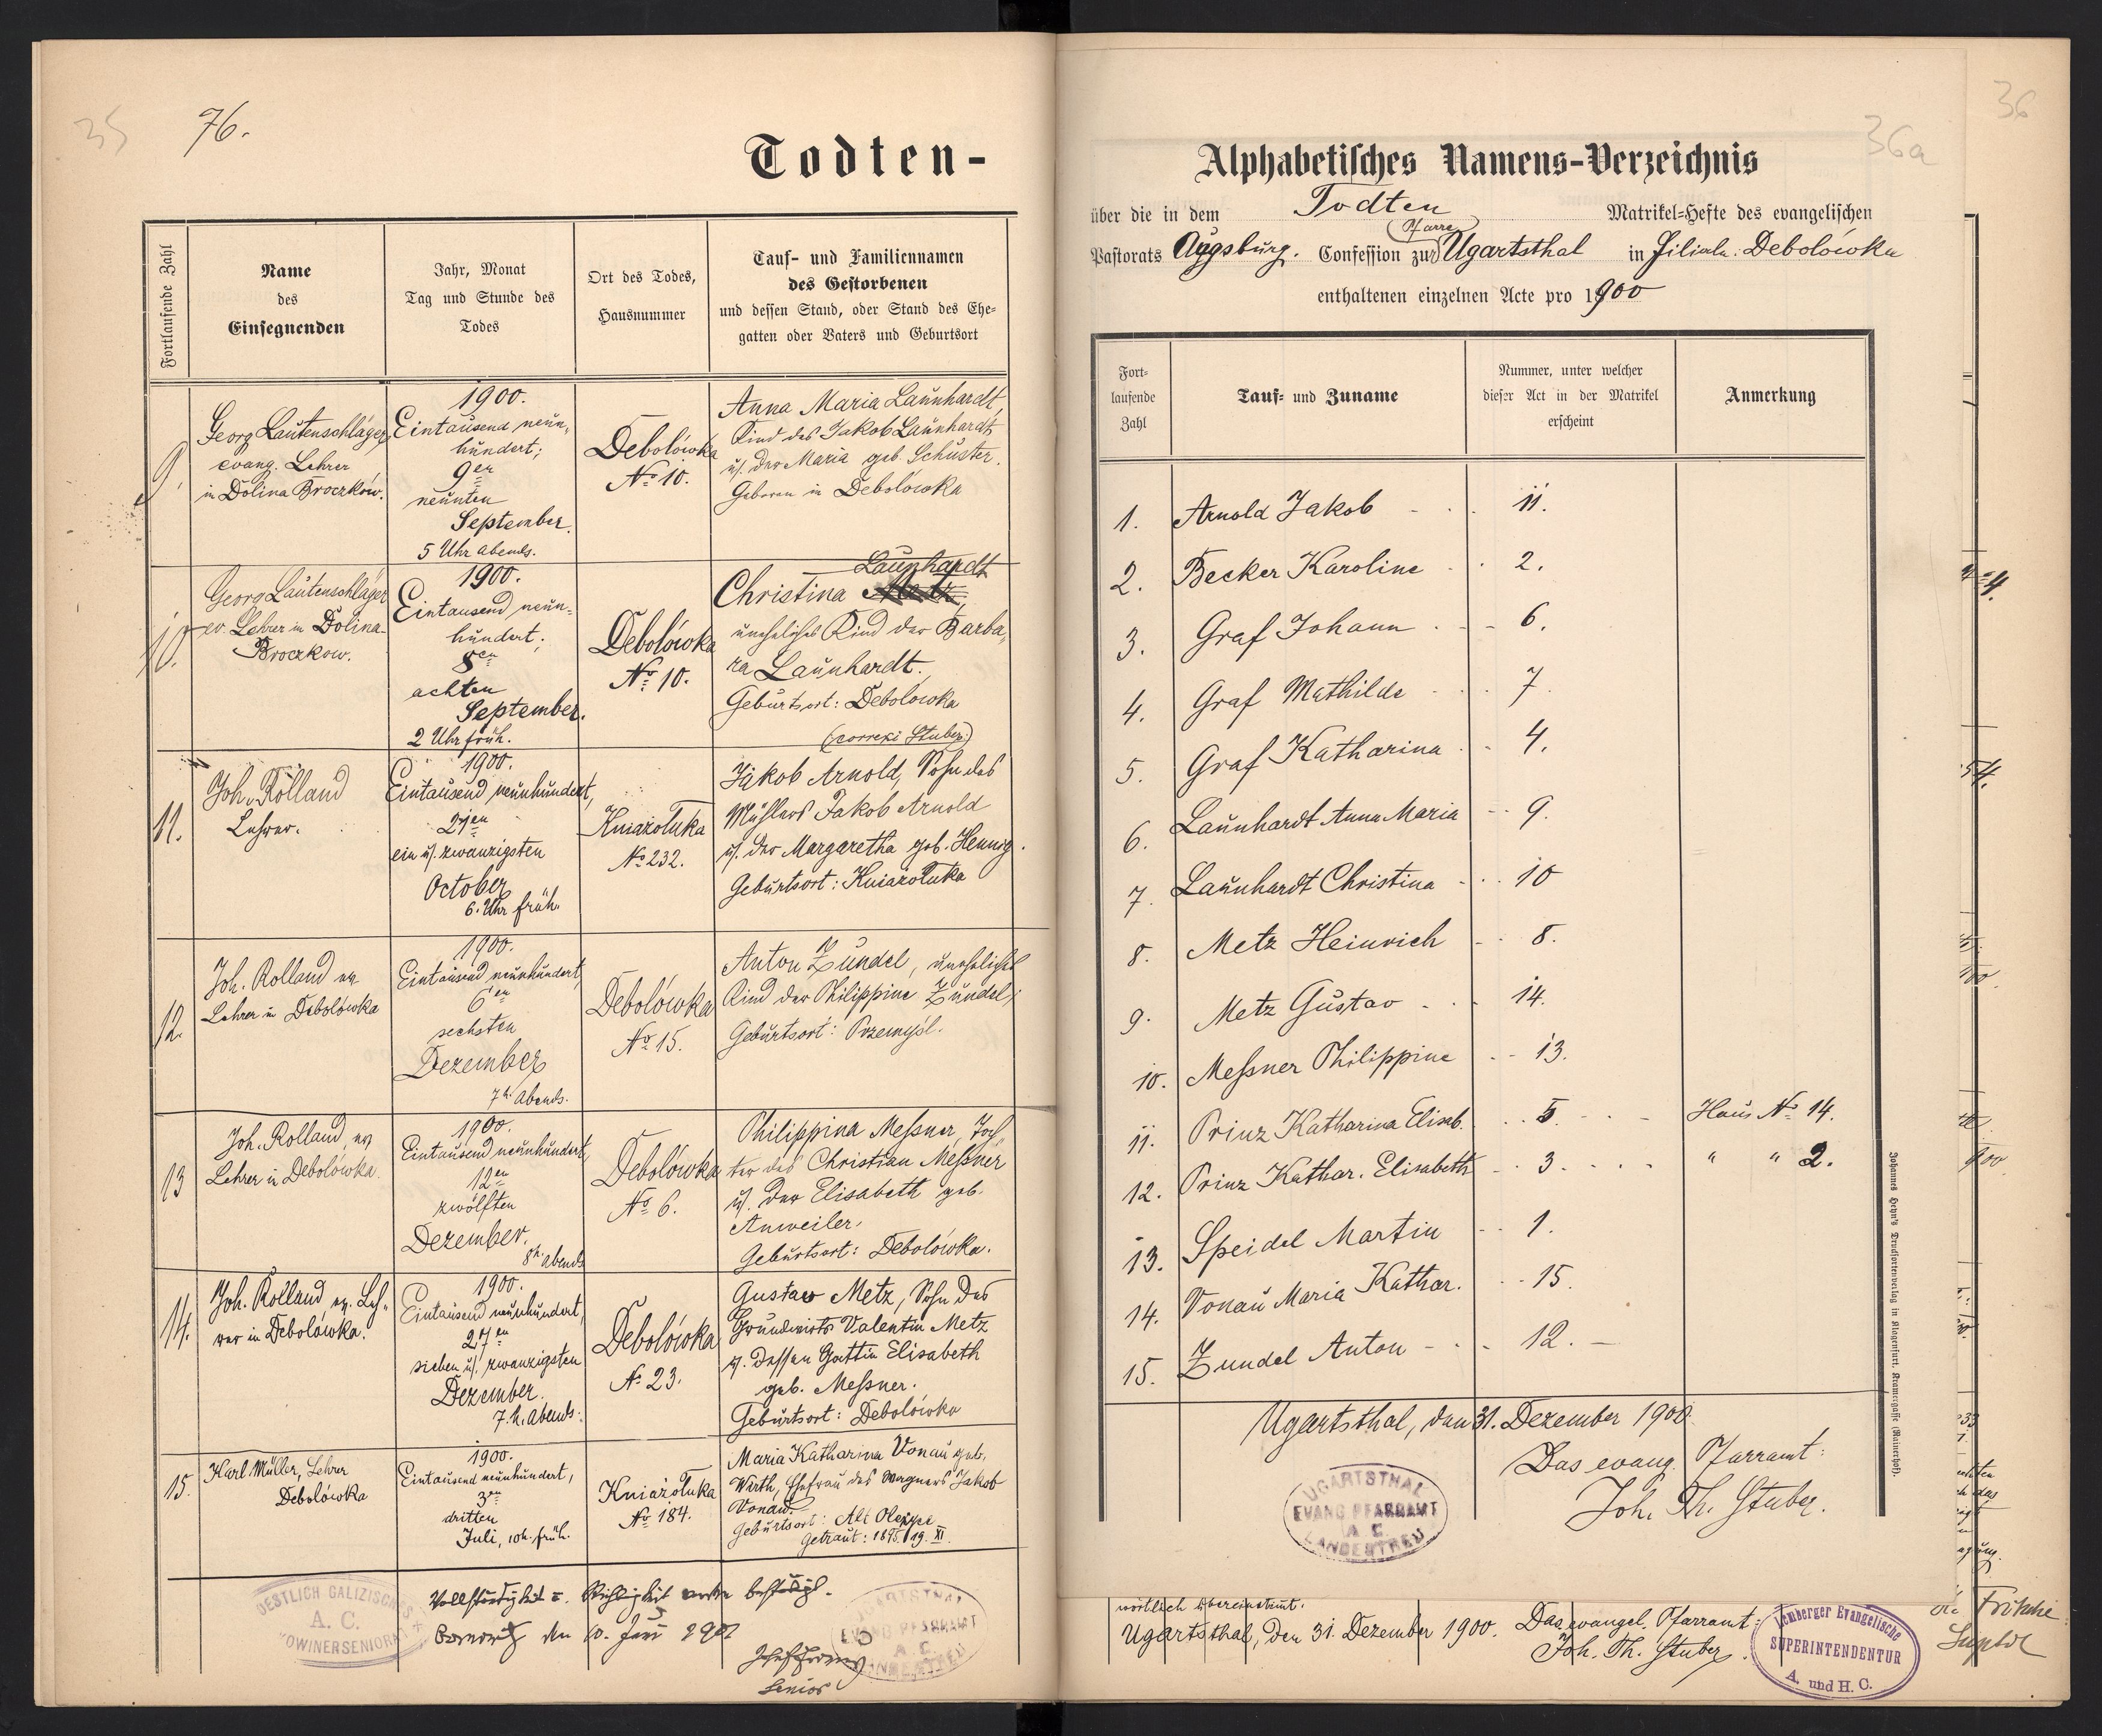 35
76.
Todten-
Fortlaufende Zahl
Name
des
Einsegnenden
Jahr, Monat
Tag und Stunde des
Todes
Ort des Todes,
Hausnummer
Tauf- und Familiennamen
des Gestorbenen
und dessen Stand, oder Stand des Ehe-
gatten oder Vaters und Geburtsort
9.
Georg Lautenschläger,
evang. Lehrer
in Dolina Broczków.
1900.
Eintausend neun-
hundert;
9en
neunten
September.
5 Uhr abends.
Debolówka
No 10.
Anna Maria Launhardt,
Kind des Jakob Launhardt
u. der Maria geb. Schuster.
Geboren in Debolówka
10.
Georg Lautenschläger
ev. Lehrer in Dolina-
Broczkow.
1900.
Eintausend neun-
hundert;
8en
achten
September.
2 Uhr früh.
Debolówka
No 10.
Launhardt
Christina Metz,
uneheliches Kind der Barba-
ra Launhardt.
Geburtsort: Debolówka
(correxi Stuber)
11.
Joh. Rolland
Lehrer.
1900.
Eintausend neunhundert,
21en
ein u. zwanzigsten
October
6. Uhr früh.
Kniażołuka
No 232.
Jakob Arnold, Sohn des
Müllers Jakob Arnold
u. der Margaretha geb. Hennig.
Geburtsort: Kniażołuka
12.
Joh. Rolland ev.
Lehrer in Debolówka
1900.
Eintausend neunhundert,
6en
sechsten
Dezember
7h. Abends.
Debolówka
No 15.
Anton Zundel, uneheliches
Kind der Philippine Zundel;
Geburtsort: Przemyśl.
13
Joh. Rolland, ev.
Lehrer in Debolówka.
1900.
Eintausend neunhundert,
12en
zwölften
Dezember.
8h. abends
Debolówka
No 6.
Philippina Meßner, Toch-
ter des Christian Meßner
u. der Elisabeth geb.
Anweiler.
Geburtsort: Debolówka.
14.
Joh. Rolland, ev. Leh-
rer in Debolówka.
1900.
Eintausend neunhundert,
27en
sieben u. zwanzigsten
Dezember.
7. h. Abends.
Debolówka
No 23.
Gustav Metz, Sohn des
Grundwirts Valentin Metz
u. dessen Gattin Elisabeth
geb. Meßner.
Geburtsort: Debolówka
15.
Karl Müller, Lehrer
Debolówka
1900.
Eintausend neunhundert,
3en
dritten
Juli, 10h. früh.
Kniażołuka
No 184.
Maria Katharina Vonau geb.
Wirth, Ehefrau des Wagners Jakob
Vonau.
Geburtsort: Alt Oleppe
Getraut: 1895. 19. XI.
Vollständigkeit u. Richtigkeit bestätigt.
den 10. Juni 1901
Senior
OESTLICH GALIZISCHES
A. C.
UGARTSTHAL
EVANG PFARRAMT
A C
LANDESTREU
36
36a
Alphabetisches Namens-Verzeichnis
über die in dem Todten Matrikel-Hefte des evangelischen
(Pfarre)
Pastorats Augsburg. Confession zu Ugartsthal in Filiale: Debolówka
enthaltenen einzelnen Acte pro 1900
Fort-
laufende
Zahl
Tauf- und Zuname
Nummer, unter welcher
dieser Act in der Matrikel
erscheint
Anmerkung
1. Arnold Jakob 11.
2. Becker Karoline 2.
3. Graf Johann 6.
4. Graf Mathilde 7.
5. Graf Katharina 4.
6. Launhardt Anna Maria 9.
7. Launhardt Christina 10
8. Metz Heinrich 8.
9. Metz Gustav 14.
10. Meßner Philippine 13.
11. Prinz Katharina Elisab. 5 Haus No 14.
12. Prinz Kathar. Elisabeth 3. " " 2.
13. Speidel Martin 1.
14. Vonau Maria Kathar. 15.
15. Zundel Anton 12.
Ugartsthal, den 31. Dezember 1900.
Das evang. Pfarramt:
Joh. Th. Stuber.
UGARTSTHAL
EVANG PFARRAMT
A C
LANDESTREU
Johannes Heyn's Drucksortenverlag in Klagenfurt, Kramergasse (Rainerhof).
wörtlich übereinstimmt.
Ugartsthal, den 31. Dezember 1900. Das evangel. Pfarramt:
Joh. Th. Stuber.
Lemberger Evangelische
SUPERINTENDENTUR
A. und H. C.
Fritsche
Suptdt